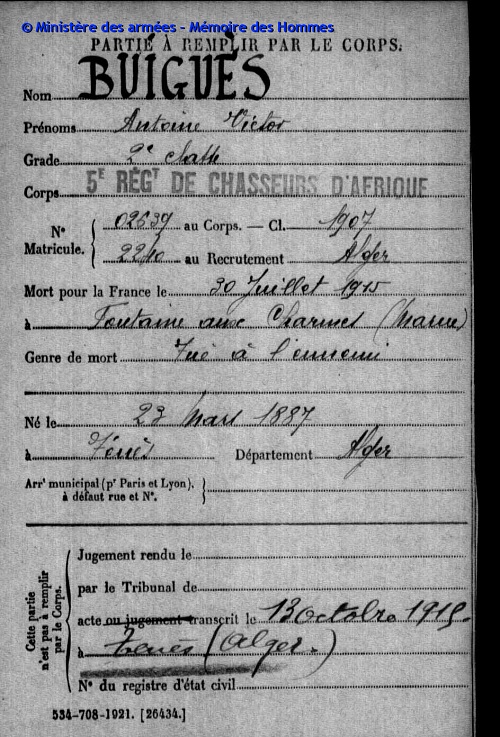 © Ministère des armées - Mémoire des Hommes
PARTIE À REMPLIR PAR LE CORPS.
Nom BUIGUÈS
Prénoms Antoine Victor
Grade 2e classe
Corps 5E RÉGT DE CHASSEURS D'AFRIQUE
N° Matricule. { 02539 au Corps. — Cl. 1907
2210 au Recrutement Alger
Mort pour la France le 30 Juillet 1915
à Fontaine aux Charmes (Marne)
Genre de mort Tué à l'ennemi
Né le 23 Mars 1887
à Ténès Département Alger
Arrt municipal (pr Paris et Lyon),
à défaut rue et N°.
Cette partie n'est pas à remplir par le Corps.
Jugement rendu le
par le Tribunal de
acte ou jugement transcrit le 13 octobre 1915.
à Tenès (Alger.)
N° du registre d'état civil
534-708-1921. [26434.]